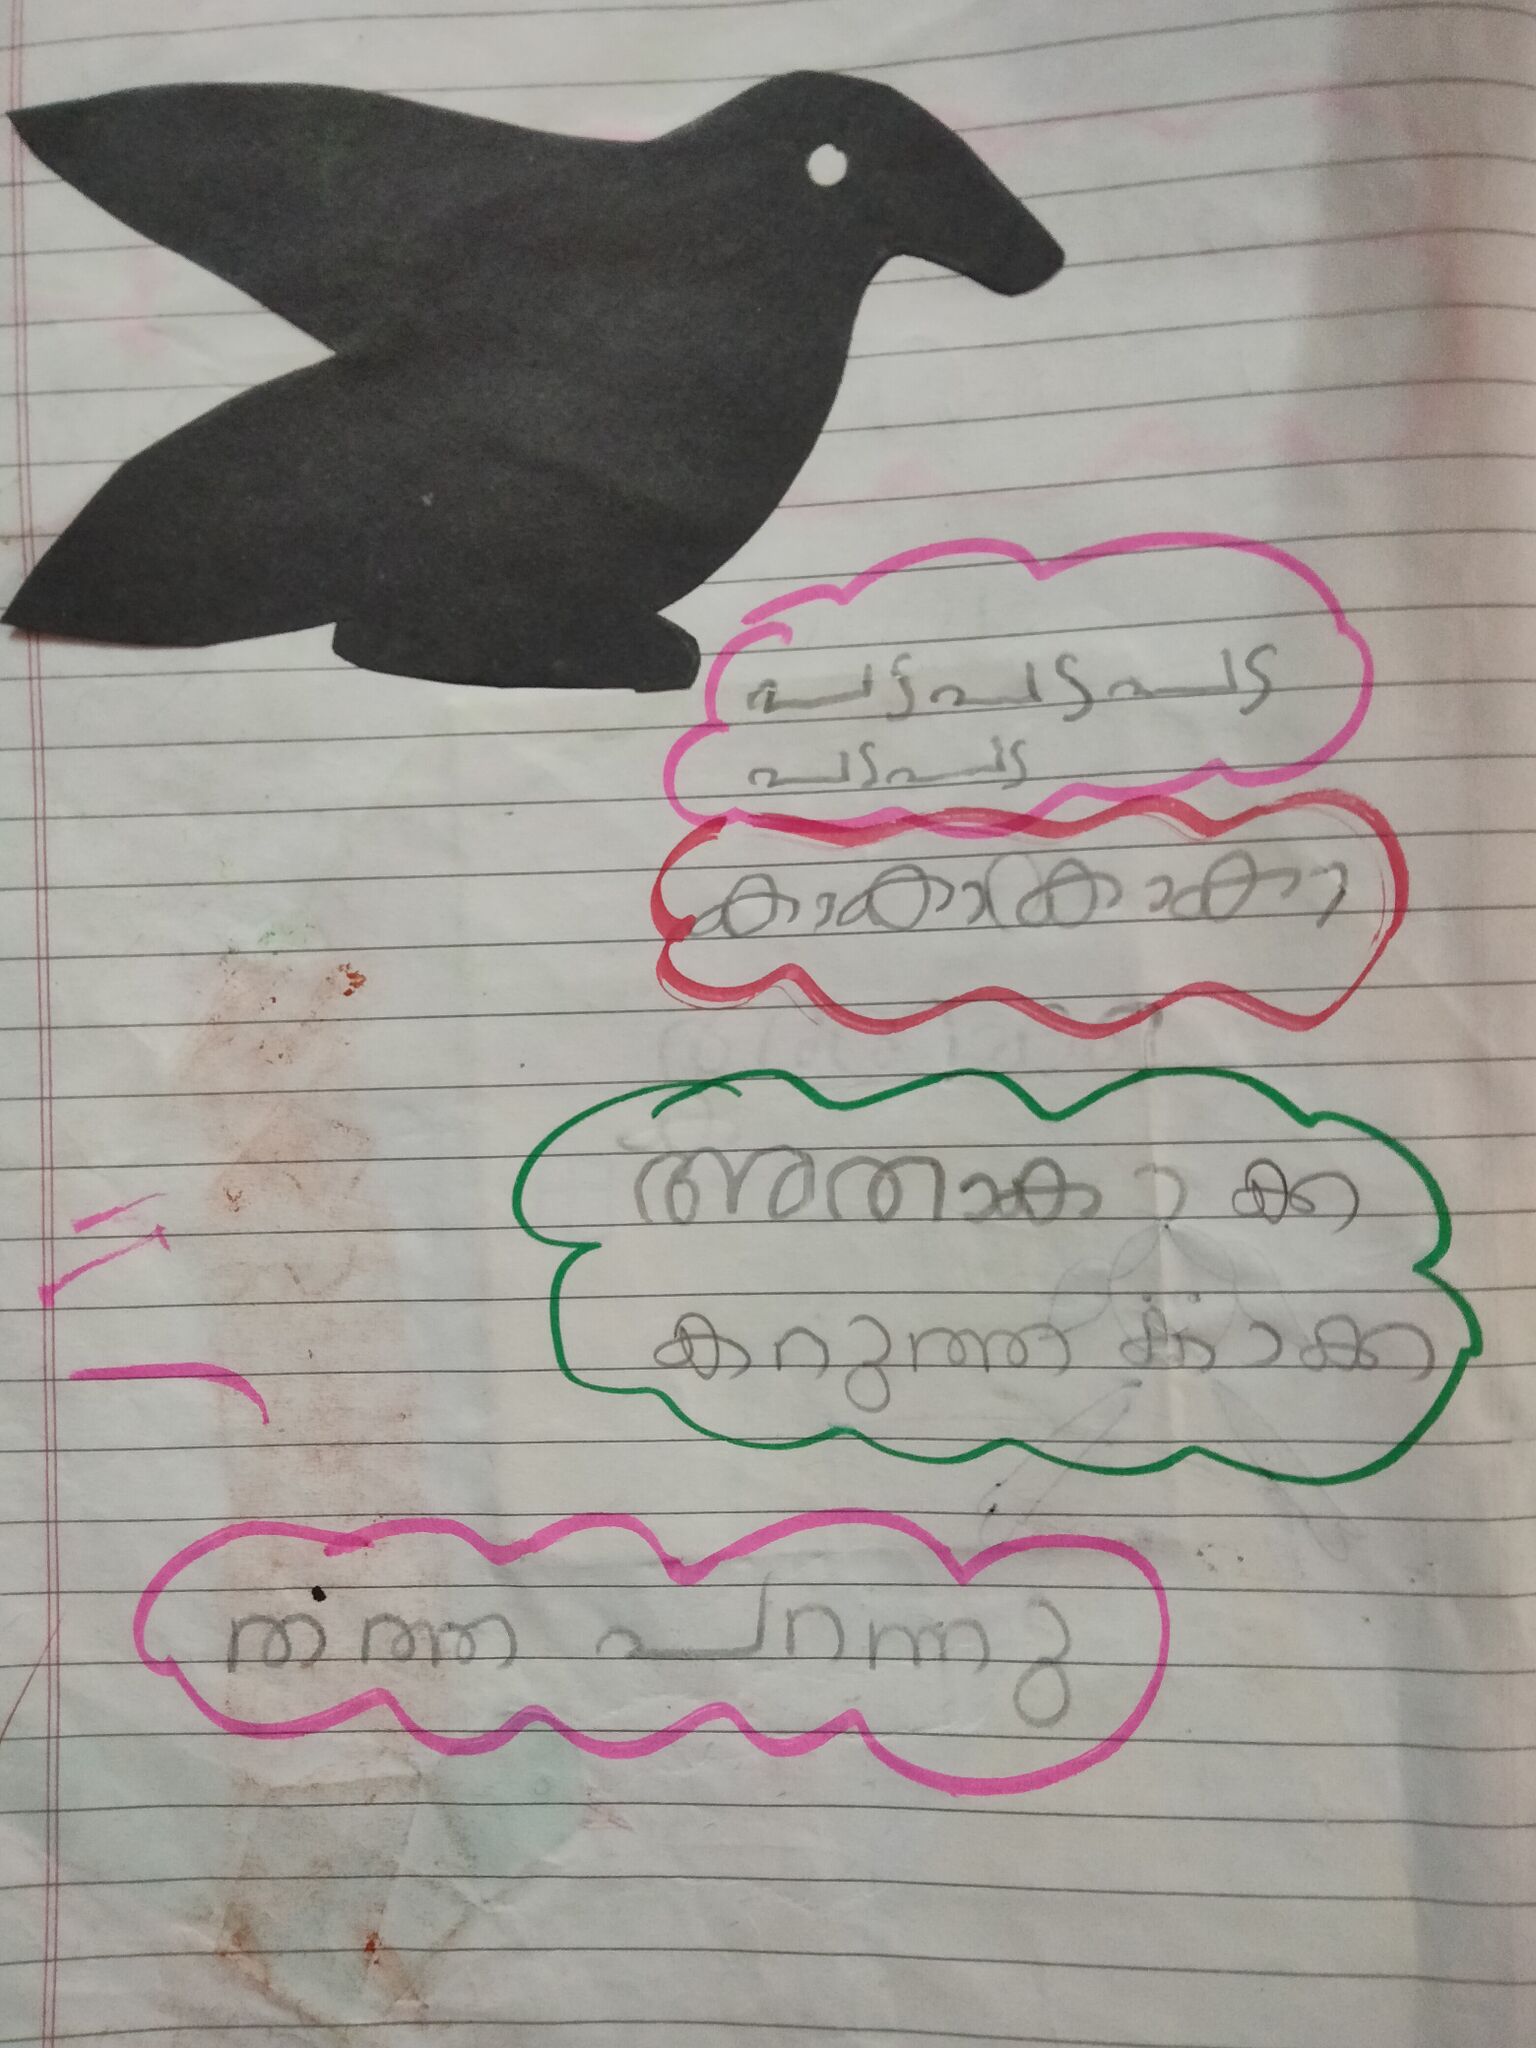 പടപടപട
പടപട
കാകാകാകാ
അതാകാക്ക
കറുത്ത കാക്ക
തത്ത പറന്നു